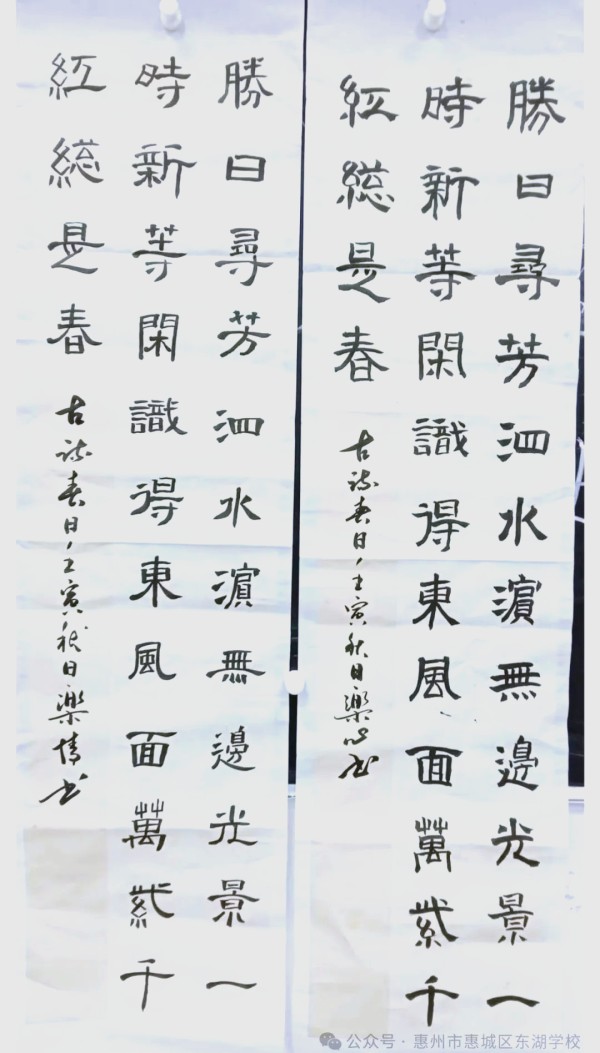 勝日尋芳泗水濵無邊光景一
時新等閑識得東風面萬紫千
紅緫是春
古詩春日、壬寅秋日樂心书
勝日尋芳泗水濵無邊光景一
時新等閑識得東風面萬紫千
紅緫是春
古詩春日、壬寅秋日樂情书
公众号·惠州市惠城区东湖学校